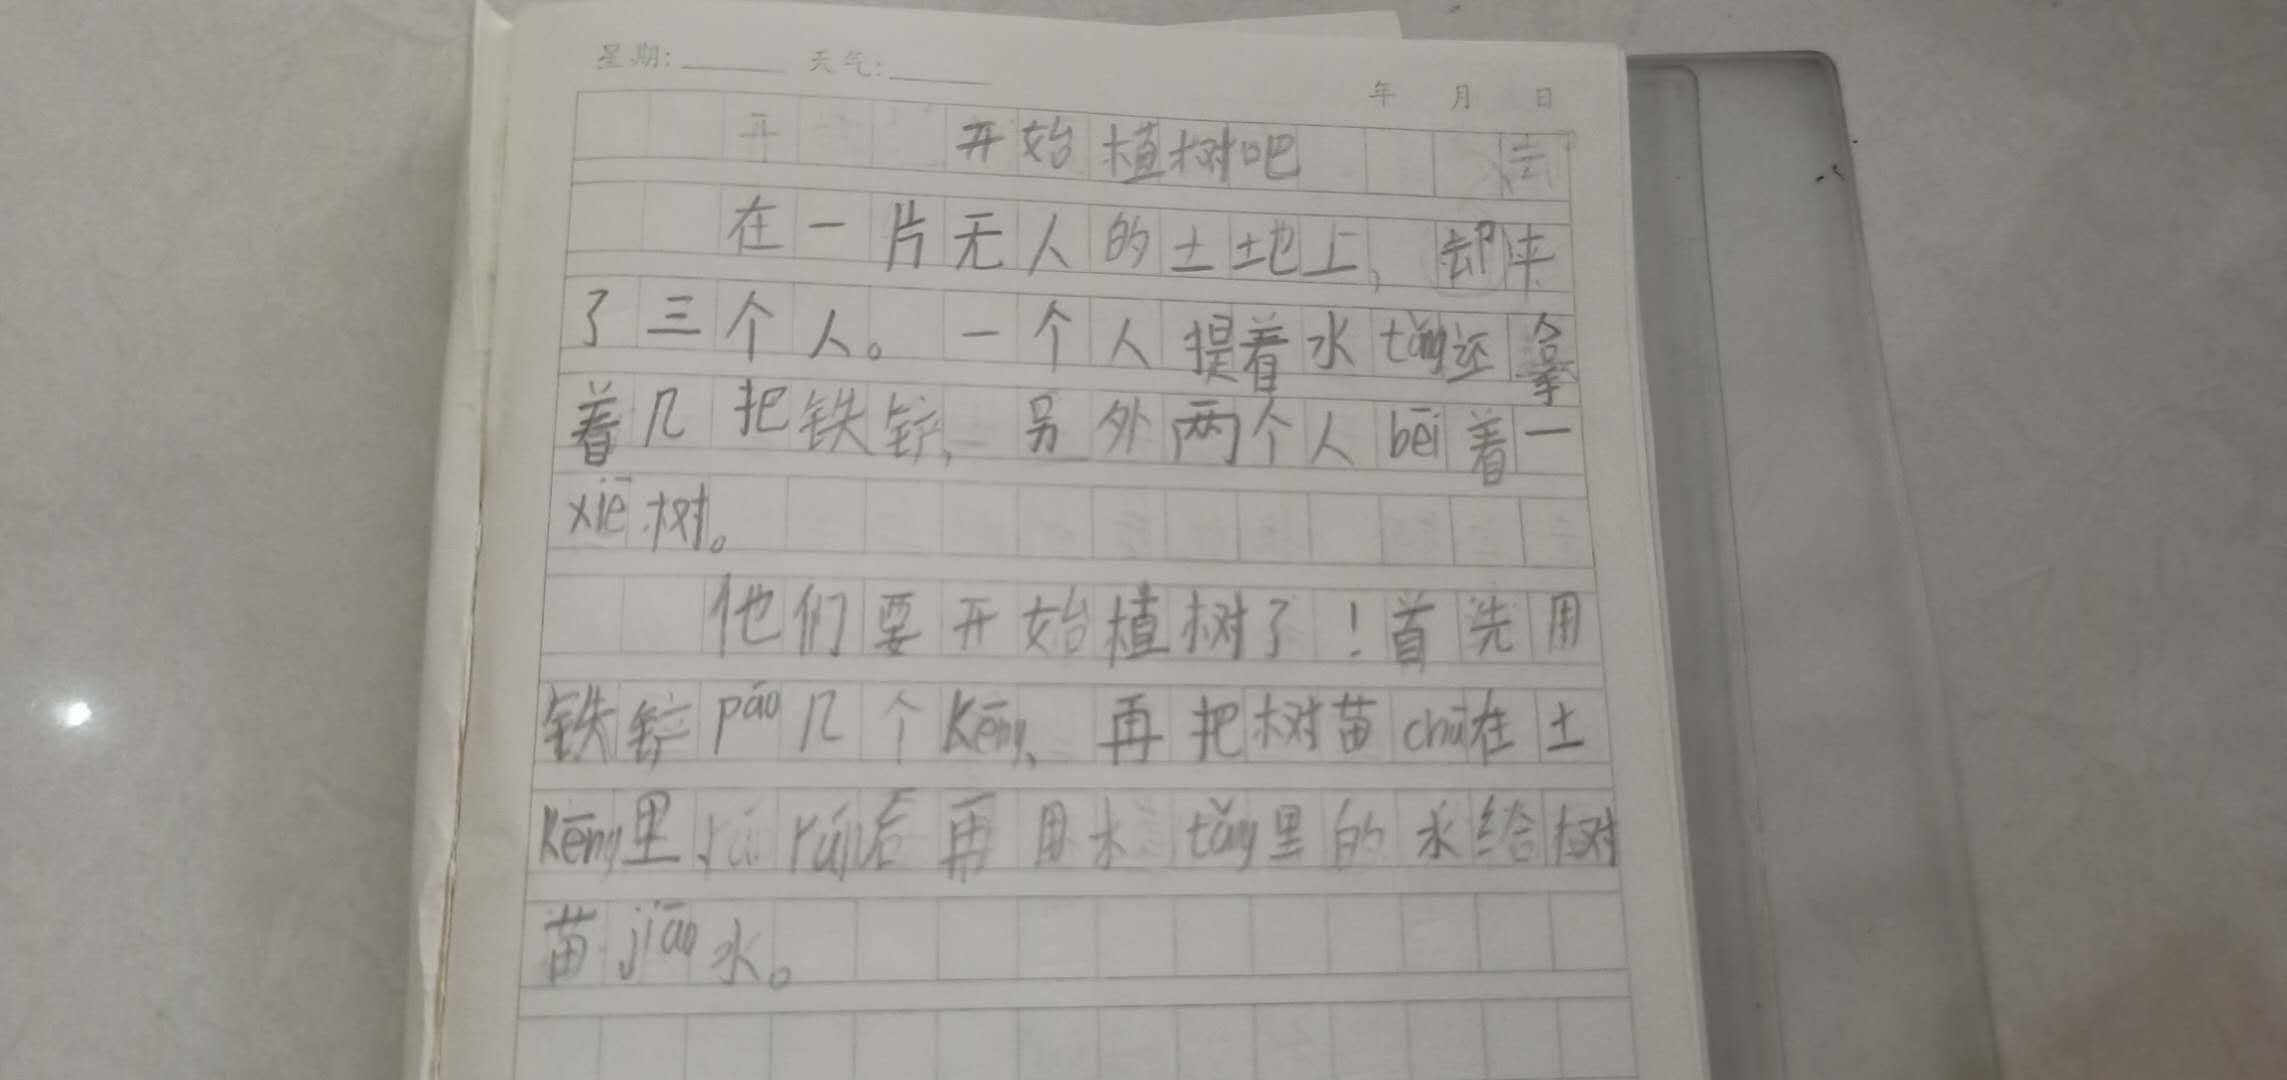 星期: 天气:
年 月 日
开始植树吧
在一片无人的土地上，却来
了三个人。一个人提着水tǒng还拿
着几把铁锌，另外两个人bēi着一
xiē树。
他们要开始植树了！首先用
铁锌páo几个Kēng，再把树苗chā在土
Kēng里，rán后再用水tǒng里的水给树
苗jiāo水。